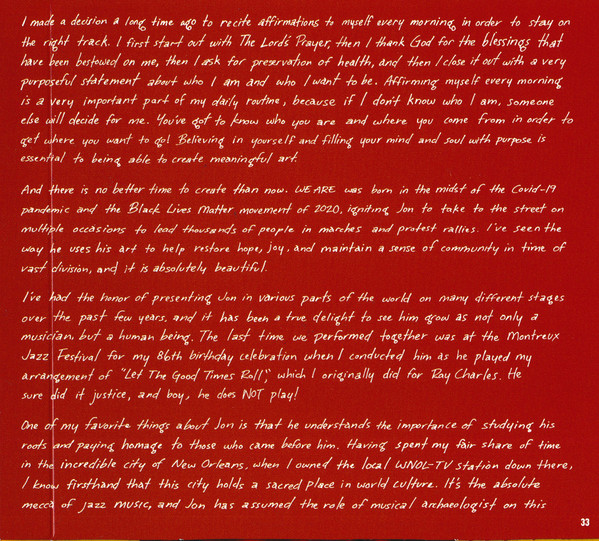 I made a decision a long time ago to recite affirmations to myself every morning in order to stay on
the right track. I first start out with The Lord's Prayer, then I thank God for the blessings that
have been bestowed on me, then I ask for preservation of health, and then I close it out with a very
purposeful statement about who I am and who I want to be. Affirming myself every morning
is a very important part of my daily routine, because if I don't know who I am, someone
else will decide for me. You've got to know who you are and where you come from in order to
get where you want to go! Believing in yourself and filling your mind and soul with purpose is
essential to being able to create meaningful art.
And there is no better time to create than now. WE ARE was born in the midst of the Covid-19
pandemic and the Black Lives Matter movement of 2020, igniting Jon to take to the street on
multiple occasions to lead thousands of people in marches and protest rallies. I've seen the
way he uses his art to help restore hope, joy, and maintain a sense of community in time of
vast division, and it is absolutely beautiful.
I've had the honor of presenting Jon in various parts of the world on many different stages
over the past few years, and it has been a true delight to see him grow as not only a
musician, but a human being. The last time we performed together was at the Montreux
Jazz Festival for my 86th birthday celebration when I conducted him as he played my
arrangement of "Let The Good Times Roll," which I originally did for Ray Charles. He
sure did it justice, and boy, he does NOT play!
One of my favorite things about Jon is that he understands the importance of studying his
roots and paying homage to those who came before him. Having spent my fair share of time
in the incredible city of New Orleans, when I owned the local WNOL-TV station down there,
I know firsthand that this city holds a sacred place in world culture. It's the absolute
mecca of jazz music, and Jon has assumed the role of musical archaeologist on this
33